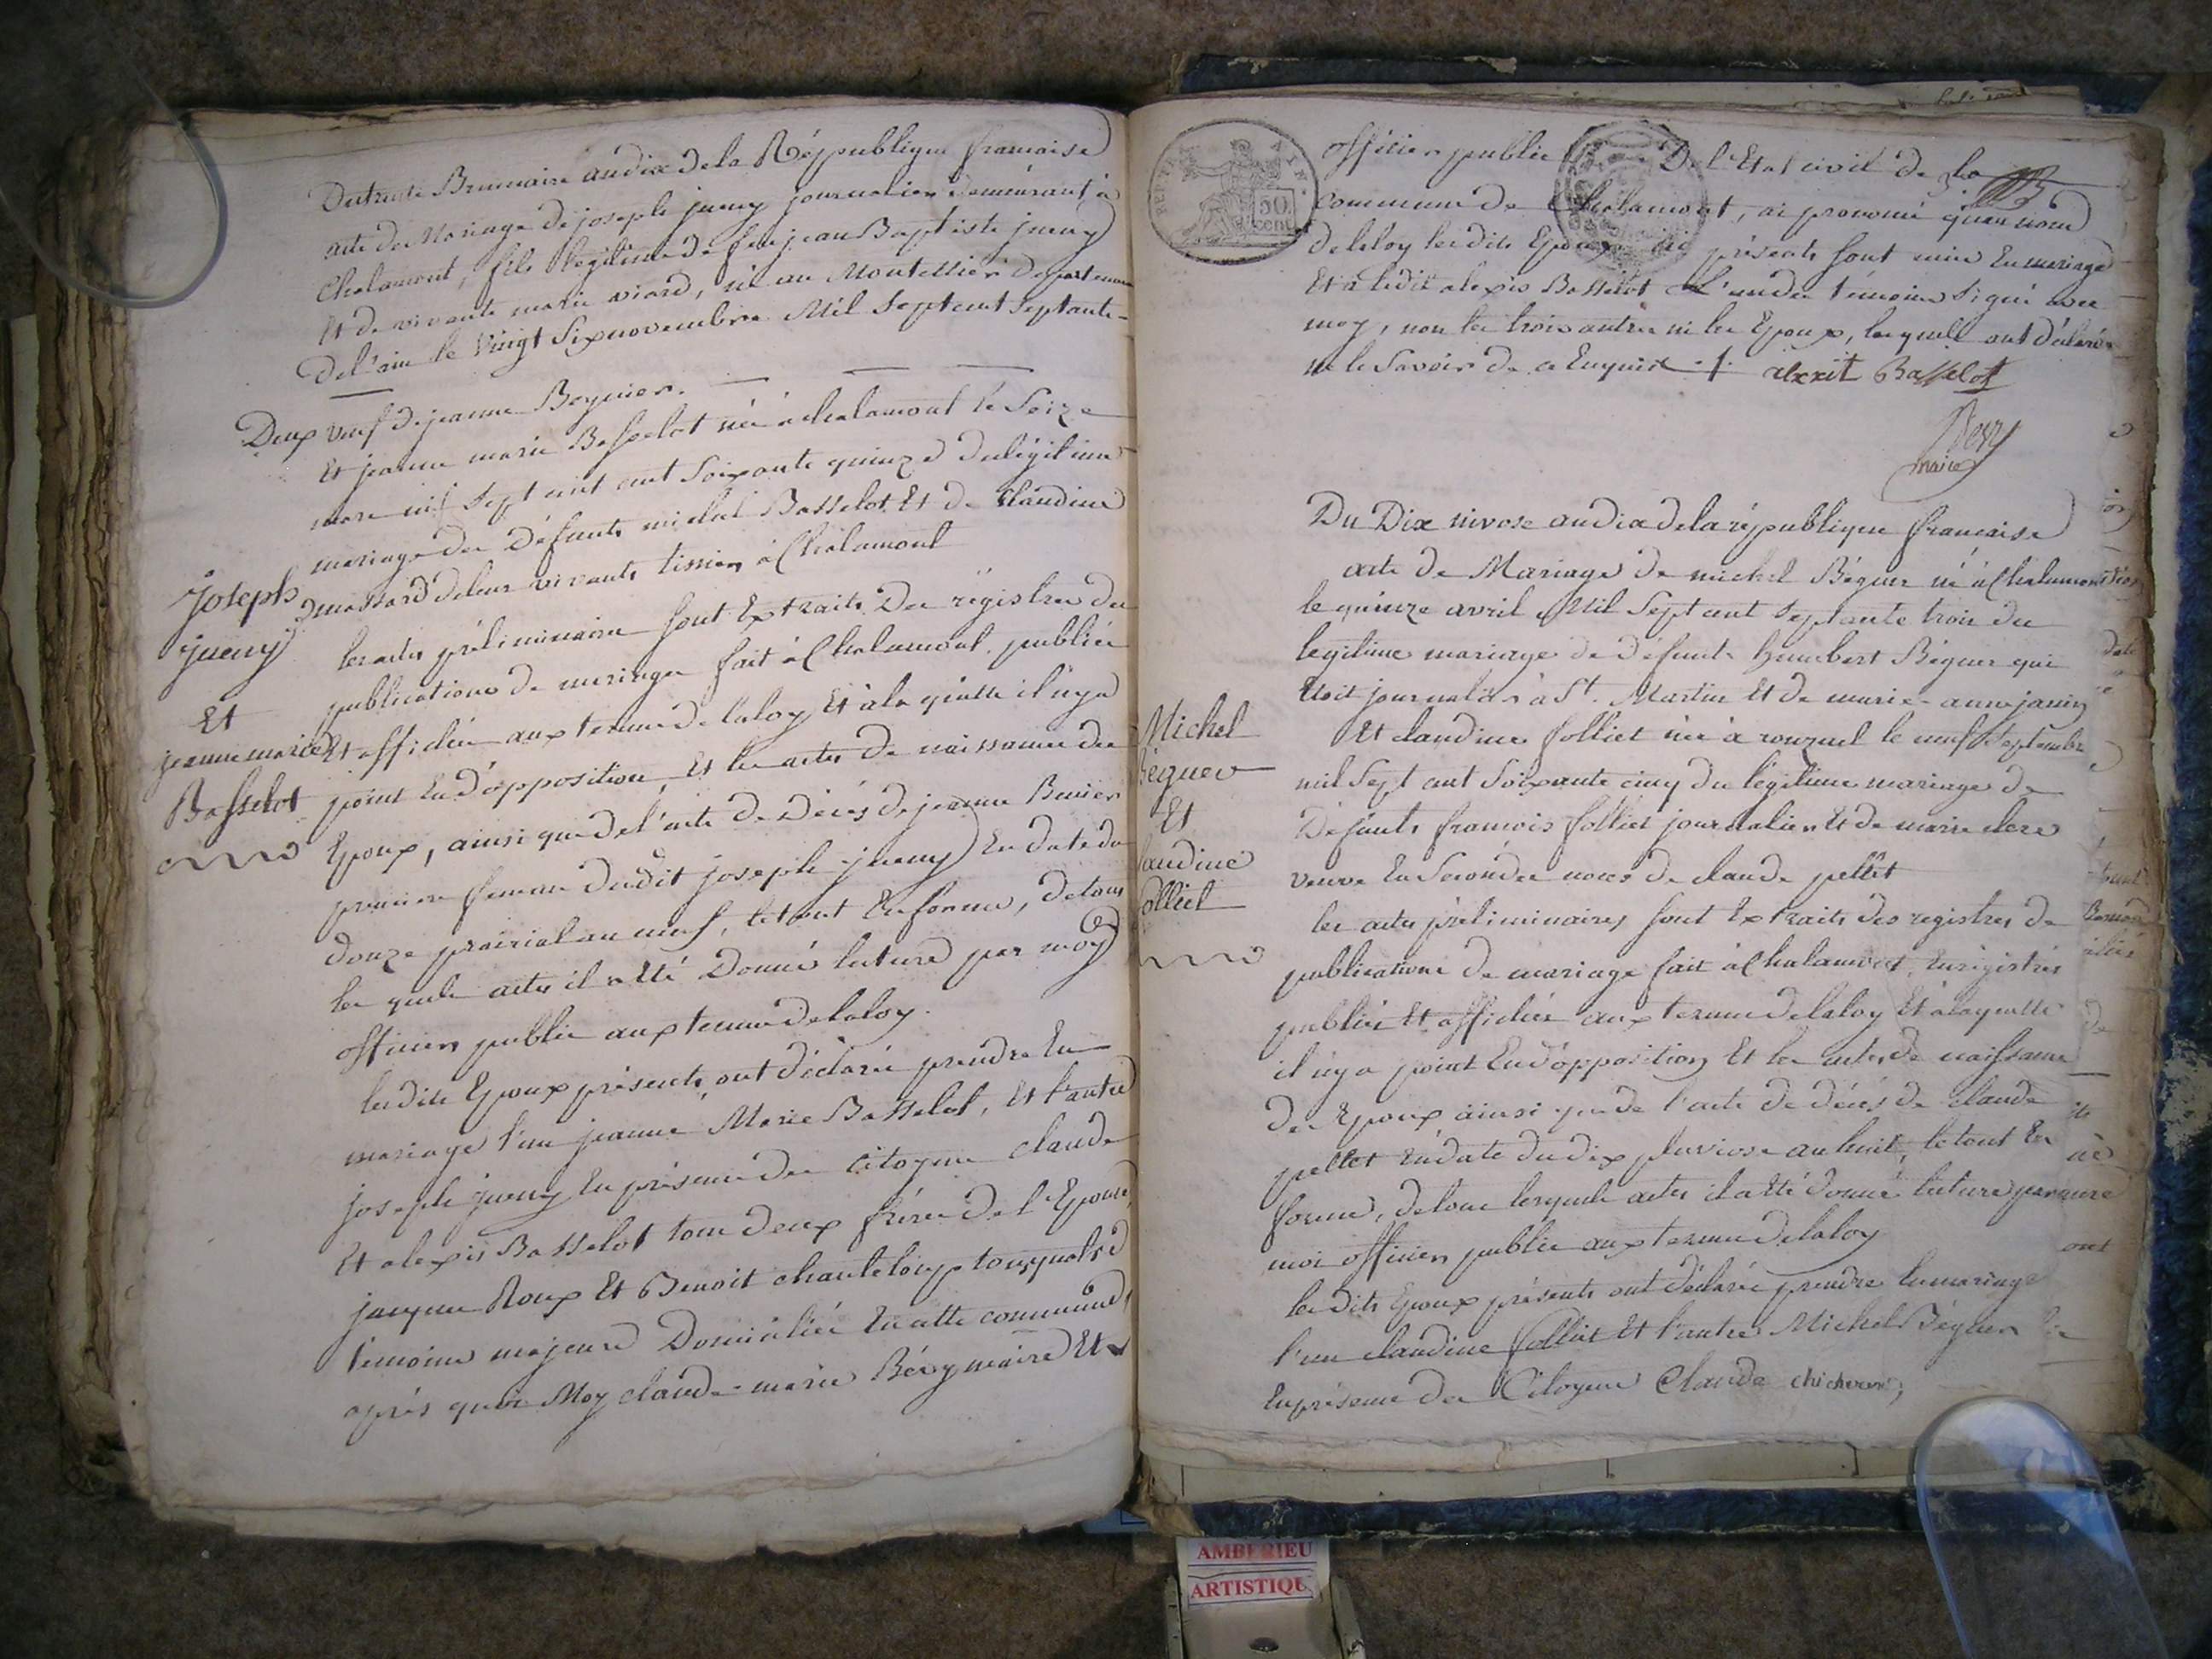 Du trente Brumaire an dix de la République francaise
acte de Mariage de joseph jueny journalier demeurant à
Chalamont, fils légitime de feu jean Baptiste jueny
Et de vivante marie viard, né au Montellier departement
de l'ain le vingt Six novembre Mil Sept cent Septante-
Deux veuf de jeanne Beynier.
Et jeanne marie Basselot née à chalamont le Seize
mars mil Sept cent cent Soixante quinze du légitime
mariage des Défunts michel Basselot Et de Claudine
massard de leur vivants tissier à Chalamont
les actes préliminaires Sont Extraits Des régistres des
publications de mariages fait à Chalamont, publiés
Et affichés aux termes de la loy Et à la quelle il n'y a
point Eu d'opposition Et les actes de naissances des
Epoux, ainsi que de l'acte de Décès de jeanne Benier
premiere femme dudit joseph jueny En date du
douze prairial an neuf, le tout En forme, de tous
les quels actes il a Eté Donné lecture par moy
officier public aux termes de la loy.
les dits Epoux présents, ont déclaré prendre En
mariage l'un jeanne Marie Basselot, Et l'autre
joseph jueny En présence des Citoyens claude
Et alexis Basselot tous deux frères de l'Epouse,
jacque Roux Et Benoit chanteloup tous quatre
temoins majeurs Domiciliés En cette commune,
après quoi Moy claude-marie Bévy maire Et
Joseph
jueny
Et
jeanne marie
Basselot
REP. FRA
50.
cent.
officier public De l'Etat civil de la
commune de Chalamont, ai prononcé qu'au nom
de la loy les dits Epoux ici présents Sont unis En mariage
Et a ledit alexis Basselot l'un des témoins Signé avec
moy, non les trois autres ni les Epoux, lesquels ont déclaré
ne le Savoir de ce Enquis
alexit Basselot
Bévy
maire
Du Dix nivose an dix de la république francaise
acte de Mariage de michel Béguer né à Chalamont
le quinze avril Mil Sept cent Septante trois du
legitime mariage de défunts humbert Béguer qui
Etoit journalier à St. Martin Et de marie-anne janin
Et claudine folliet née à ronzuel le neuf Septembre
mil Sept cent Soixante cinq du légitime mariage de
Défunts francois folliet journalier Et de marie clere
veuve En Secondes noces de claude pellet
les actes préliminaires Sont Extraits des registres de
publications de mariage fait à Chalamont, Enrégistrés
publiés Et affichés aux termes de la loy Et à laquelle
il n'y a point Eu d'opposition Et les actes de naissance
des Epoux, ainsi que de l'acte de décès de claude
pellet En date du dix pluviose an huit, le tout En
forme, de tous lesquels actes il a Eté donné lecture par
moi officier public aux termes de la loy
les dits Epoux présents ont déclaré prendre En mariage
l'un claudine folliet Et l'autre Michel Béguer
En présence des Citoyens Claude
Michel
éguer
Et
laudine
olliet
AMBERIEU
ARTISTIQU